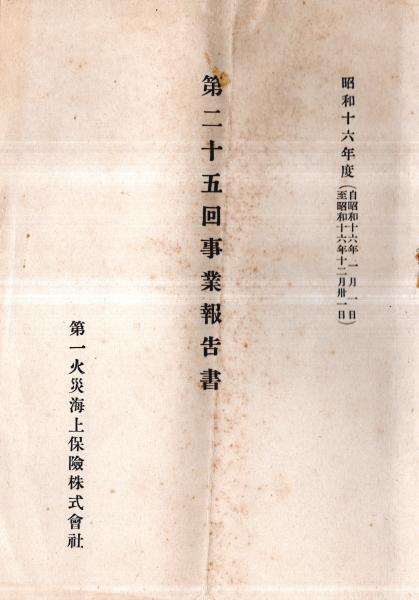 昭和十六年度（自昭和十六年一月一日
至昭和十六年十二月卅一日）
第二十五回事業報告書
第一火災海上保險株式會社